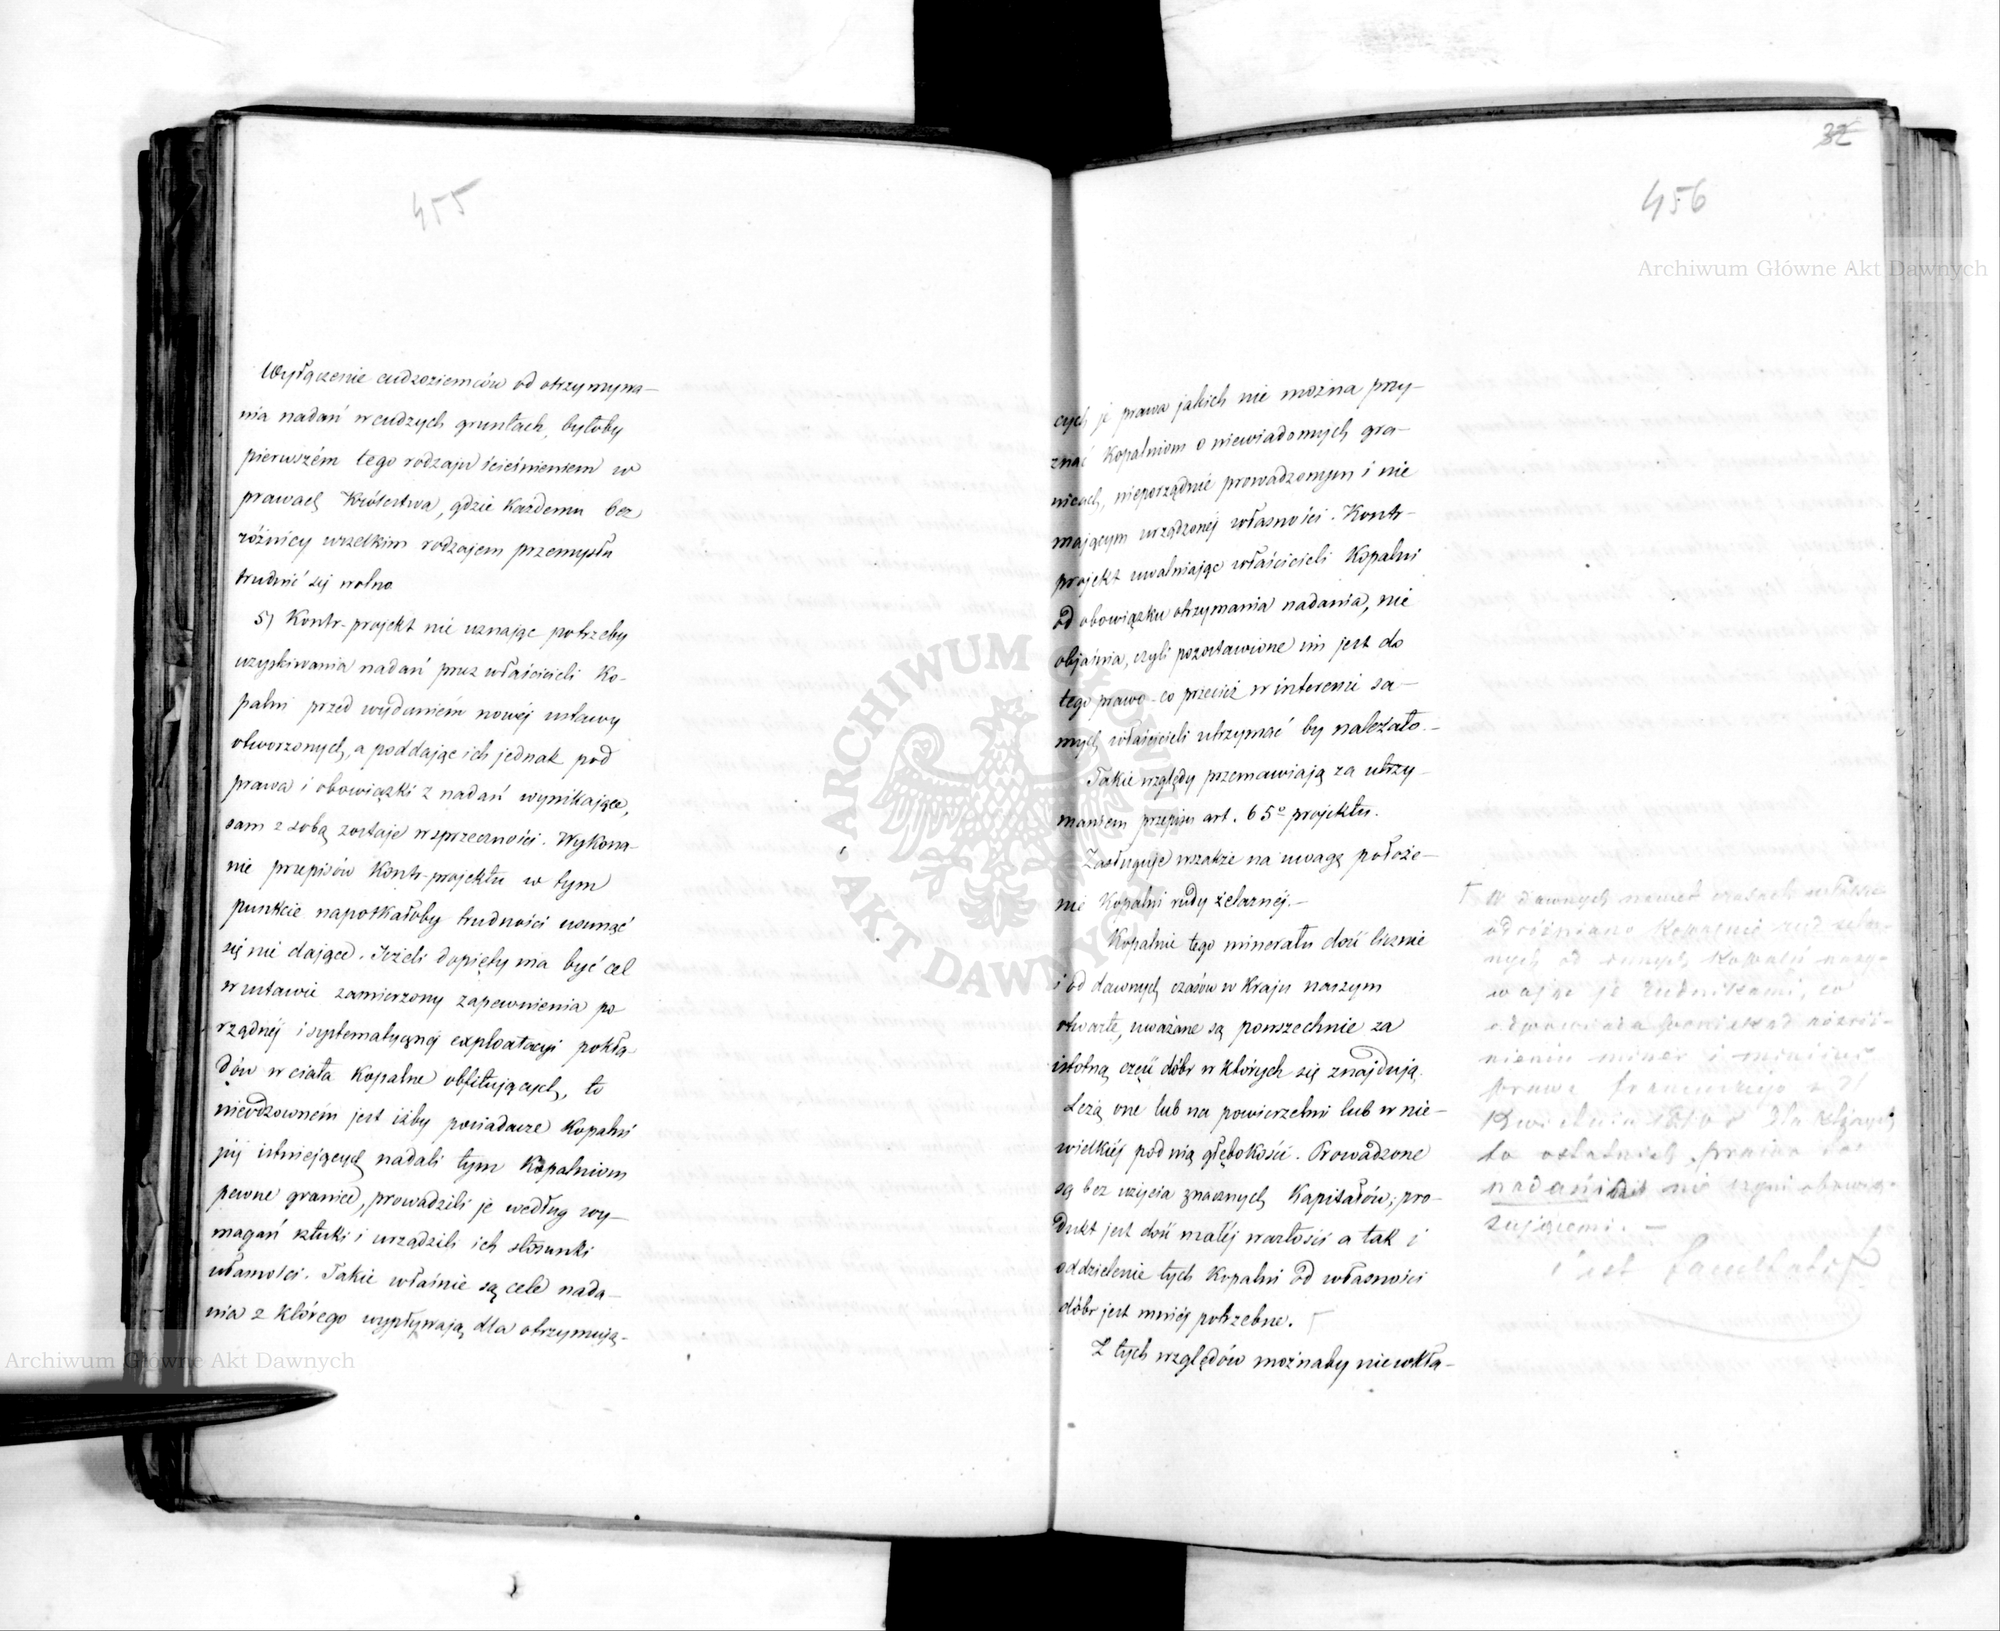 455
Wyłączenie cudzoziemców od otrzymywa-
nia nadań w cudzych gruntach, byłoby
pierwszém tego rodzaju ścieśnieniem w
prawach Królestwa, gdzie każdemu bez
różnicy wszelkim rodzajem przemysłu
trudnić się wolno
5) Kontr-projekt nie uznając potrzeby
uzyskiwania nadań przez właścicieli Ko-
palni przed wydaniem nowéj ustawy
otworzonych, a poddając ich jednak pod
prawa i obowiązki z nadań wynikające,
sam z sobą zostaje w sprzeczności. Wykona-
nie przepisów Kontr-projektu w tym
punkcie napotkałoby trudności usunąć
się nie dające. Jeżeli dopięty ma być cel
w ustawie zamierzony zapewnienia po
rządnéj i systematycznéj exploatacyi pokła
dów w ciała kopalne obfitujących, to
nieodzowném jest iżby posiadacze Kopalni
już istniejących nadali tym Kopalniom
pewne granice, prowadzili je według wy-
magań sztuki i urządzili ich stosunki
własności. Takie właśnie są cele nada-
nia z którego wypływają dla otrzymują-
Archiwum Główne Akt Dawnych
32
456
Archiwum Główne Akt Dawnych
cych je prawa jakich nie można przy-
znać Kopalniom o niewiadomych gra-
nicach, nieporządnie prowadzonym i nie
mającym urządzonéj własności. Kontr-
projekt uwalniając właścicieli Kopalni
od obowiązku otrzymania nadania, nie
objaśnia, czyli pozostawione im jest do
tego prawo - co przecież w interesie sa-
mych właścicieli utrzymać by należało.-
Takie względy przemawiają za utrzy-
maniem przepisu art. 65º projektu.
Zasługuje wszakże na uwagę położe-
nie Kopalni rudy żelaznéj.-
Kopalnie tego minerału dość licznie
i od dawnych czasów w Kraju naszym
otwarte, uważane są powszechnie za
istotną część dóbr w których się znajdują.
Leżą one lub na powierzchni lub w nie-
wielkiéj pod nią głębokości. Prowadzone
są bez użycia znacznych Kapitałów; pro-
dukt jest dość małéj wartości a tak i
oddzielenie tych Kopalni od własności
dóbr jest mniéj potrzebne.
Z tych względów możnaby nie wkła-
W dawnych nawet czasach
odróżniano Kopalnie rud żela-
znych od innych Kopalń nazy-
wając je Rudnikami, co
odpowiada poniekąd rozróż-
nieniu mines i minières
prawa francuzkiego z 21
Kwietnia 1810 r dla których
to ostatnich prawo to
nadań nie czyni obowią-
zującemi. -
c'est facultatif
ARCHIWUM GŁÓWNE AKT DAWNYCH